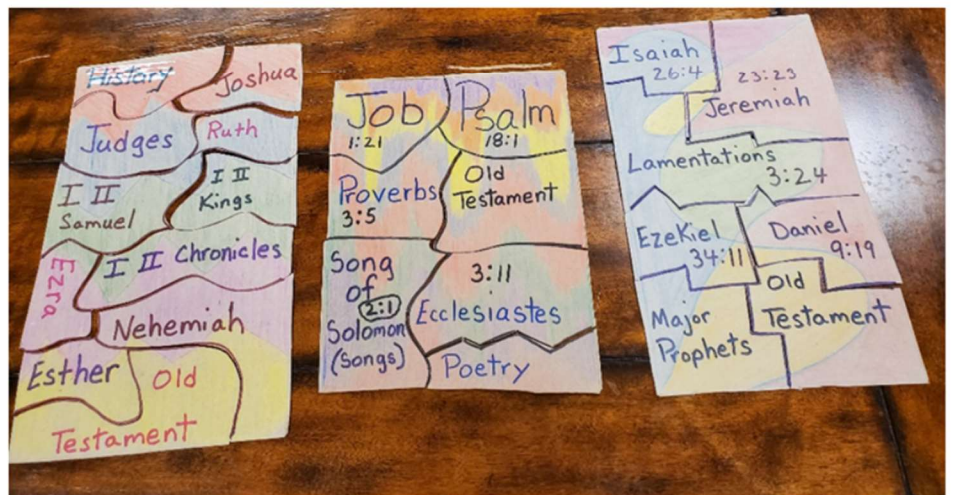 History
Joshua
Judges
Ruth
I II
Samuel
I II
Kings
Ezra
I II Chronicles
Nehemiah
Esther
Old
Testament
Job
1:21
Psalm
18:1
Proverbs
3:5
Old
Testament
Song
of
2:1
Solomon
(Songs)
3:11
Ecclesiastes
Poetry
Isaiah
26:4
23:23
Jeremiah
Lamentations
3:24
Ezekiel
34:11
Daniel
9:19
Major
Prophets
Old
Testament